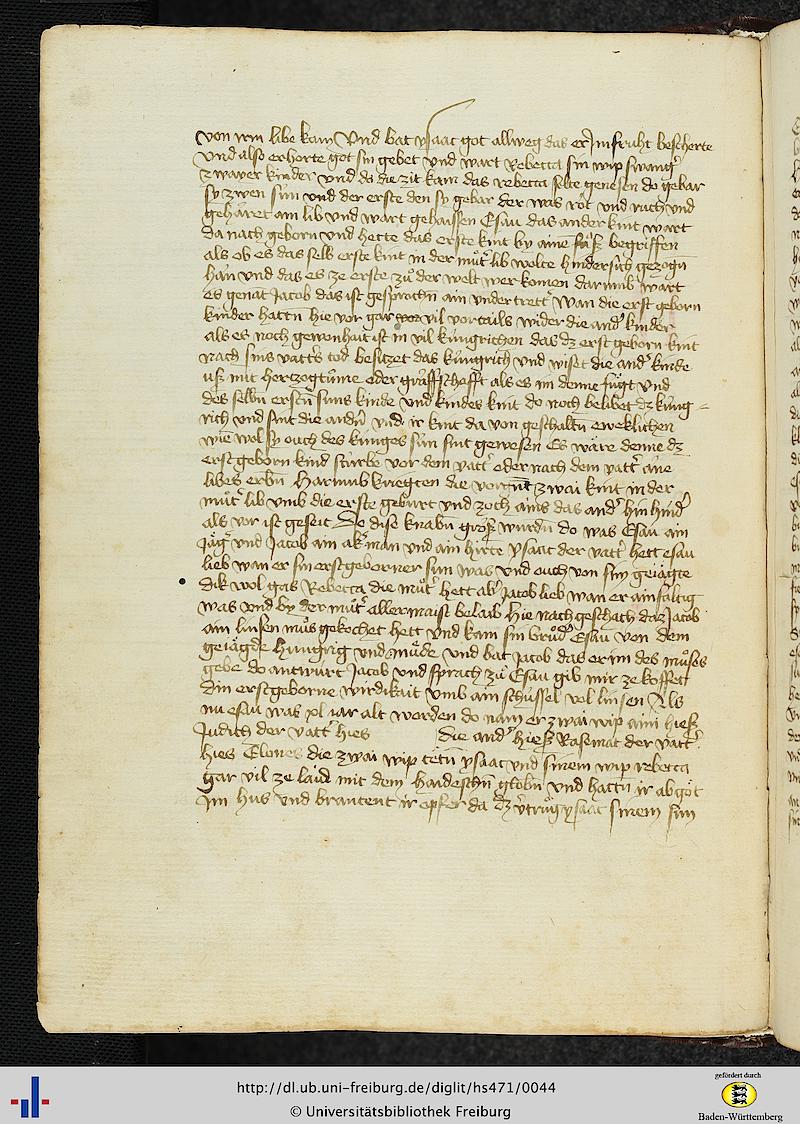 von irm libe kam Vnd bat ysaac got allweg das er Im fruht bescherte
Vnd also erhorte got sin gebet vnd wart Rebecca sin wip swang͛
zwayer kinder vnd do die zit kam das rebecca solte genesen do gebar
sy zwen sún vnd der erste den sy gebar der was rot vnd ruch vnd
gehäret am lib vnd wart gehaissen Esau das ander kint wart
da nach geborn vnd hette das erste kint by aine fůß begriffen
als ob es das selb erste kint in der můt͛ lib wolte hindersich gezogn̄
han vnd das es ze erste zů der welt wer komen dar umb wart
es genāt Jacob das ist gesprochn̄ ain vndertrett͛ wan die erst geborn
kinder hattn̄ hie vor gar vil vortails wider die and͛ kinder
als es noch gewonhait ist in vil kúngrichen das dz erst geborn kint
nach sins vatt͛s tod besitzet das kúngrich vnd wiset die and͛ kinde
uß mit herczogtůme oder gräffschafft als es im denne fůgt vnd
des selbn̄ erstn̄ suns kinde vnd kindes kint do noch belibet dz kúng-
rich vnd sint die andn̄ vnd ir kint da von geschaltn̄ eweklichen
wie wol sy ouch des kúniges sún sint gewesen Es wäre denne dz
erst geborn kind stúrbe vor dem vatt͛ oder nach dem vatt͛ ane
libes erbn̄ Darumb kriegten die zwai kint in der
můt͛ lib vmb die erste geburt vnd zoch ains das and͛ hin hind͛
als vor ist geseit Do dise knabn̄ groß wurdn̄ do was Esau ain
Jäg͛ vnd Jacob ain ak͛man vnd ain hirte ysaac der vatt͛ hett esau
lieb wan er sin erstgeborner sun was vnd ouch von sim geiägte
dik wol gas Rebecca die můt͛ hett ab͛ Jacob lieb wan er ainfaltig
was vnd by der můt͛ allermaist belaib Hie nach geschach daz Jacob
ain linsen můs gekochet hett vnd kam sin brůd͛ Esau von dem
geiägde hungrig vnd můde vnd bat Jacob das er im des můses
gebe do antwúrt Jacob vnd sprach zů Esau gib mir ze koffen
din erstgeborne wirdikait vmb ain schússel vol linsen Als
nu esau was xl iar alt worden do nam er zwai wip aini hieß
Judith der vatt͛ hies die and͛ hieß Basemat der vatt͛
hies Elones die zwai wip tetn̄ ysaac vnd sinem wip rebecca
gar vil ze laid mit dem haideschn̄ globn̄ vnd hattn̄ ir abgöt
Im hus vnd brantent ir opfer da dz v͛trůg ysaac sinem sun
http://dl.ub.uni-freiburg.de/diglit/hs471/0044
© Universitätsbibliothek Freiburg
gefördert durch
Baden-Württemberg